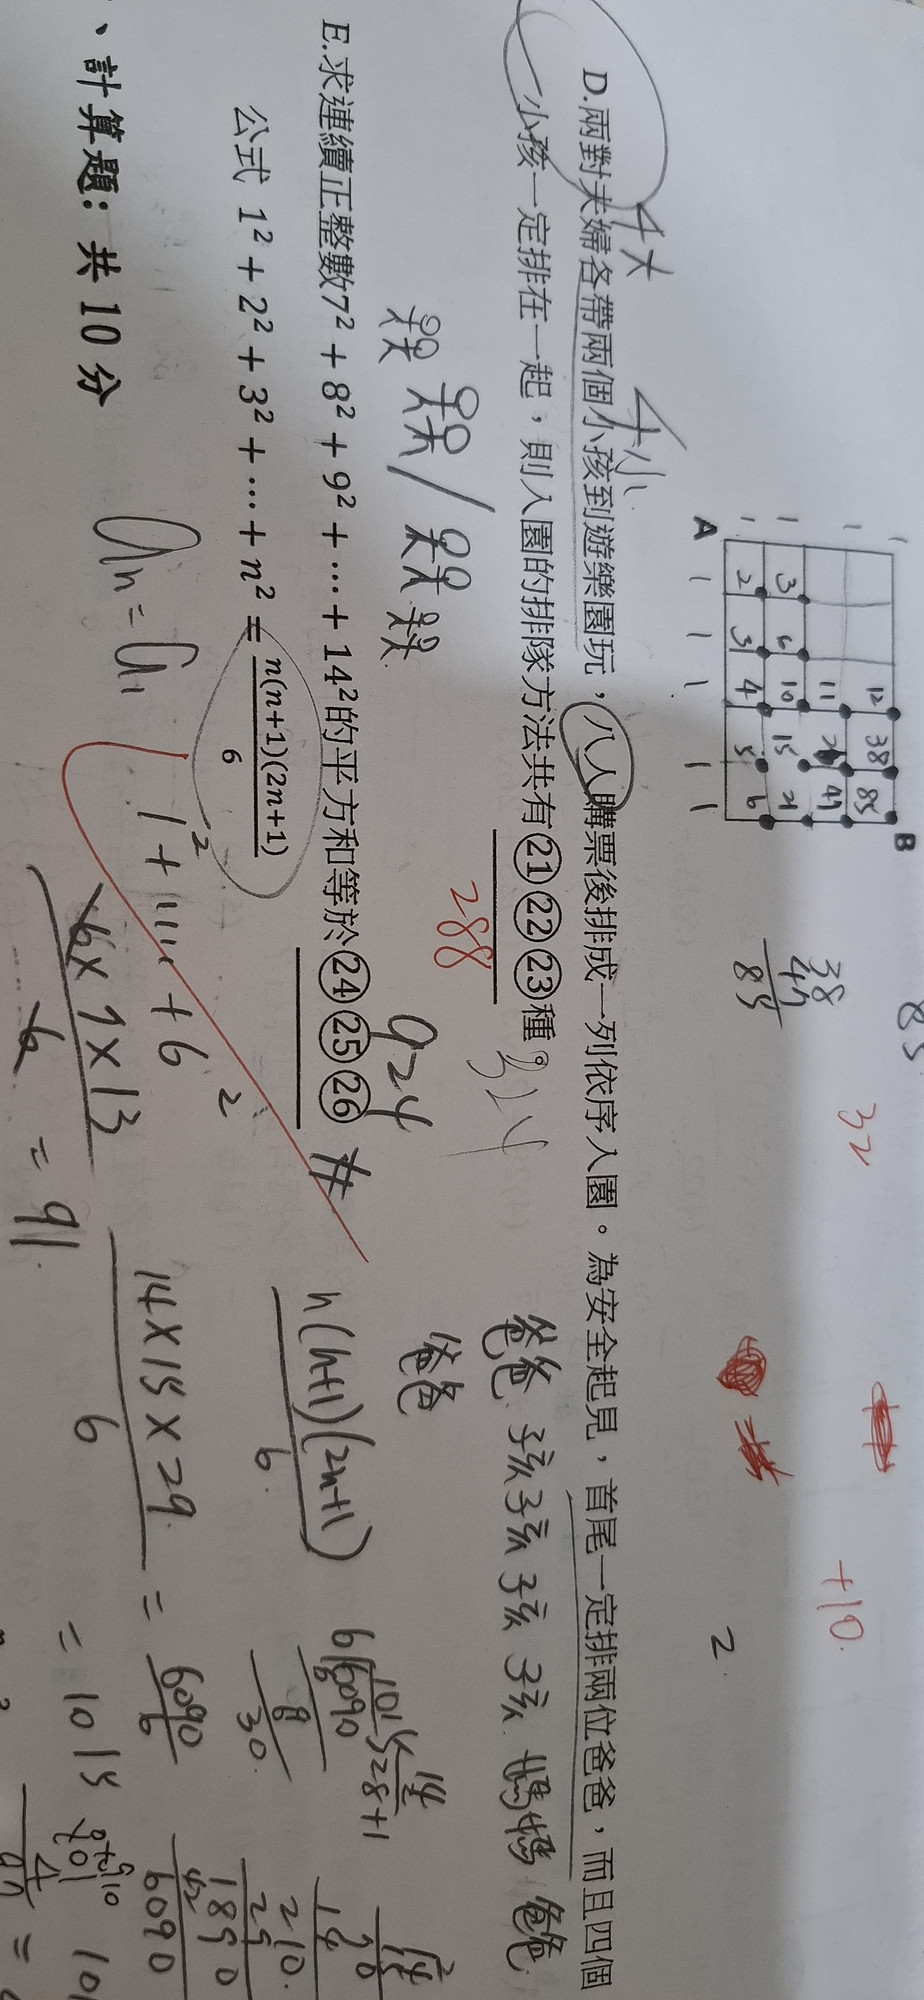 A
B
1
1
1
1
1
1
1
1
12 38 85
11 47
3 6 10 15 21
2 3 4 5 6
38
47
85
85
32
+10
2
4大
4小
D.兩對夫婦各帶兩個小孩到遊樂園玩,八人購票後排成一列依序入園。為安全起見,首尾一定排兩位爸爸,而且四個
小孩一定排在一起,則入園的排隊方法共有㉑㉒㉓種。
288
324
爸爸 孩 孩 孩 孩 媽媽 爸爸
爸爸
E.求連續正整數7² + 8² + 9² + ⋯ + 14²的平方和等於㉔㉕㉖
924 #
公式 1² + 2² + 3² + ⋯ + n² = n(n+1)(2n+1)/6
n(n+1)(2n+1)/6
1² + ⋯ + 6²
14×15×29/6 = 6090/6
= 1015
6×7×13/6 = 91
an = a1
28+1
210
29
1890
42
6090
、計算題:共 10 分